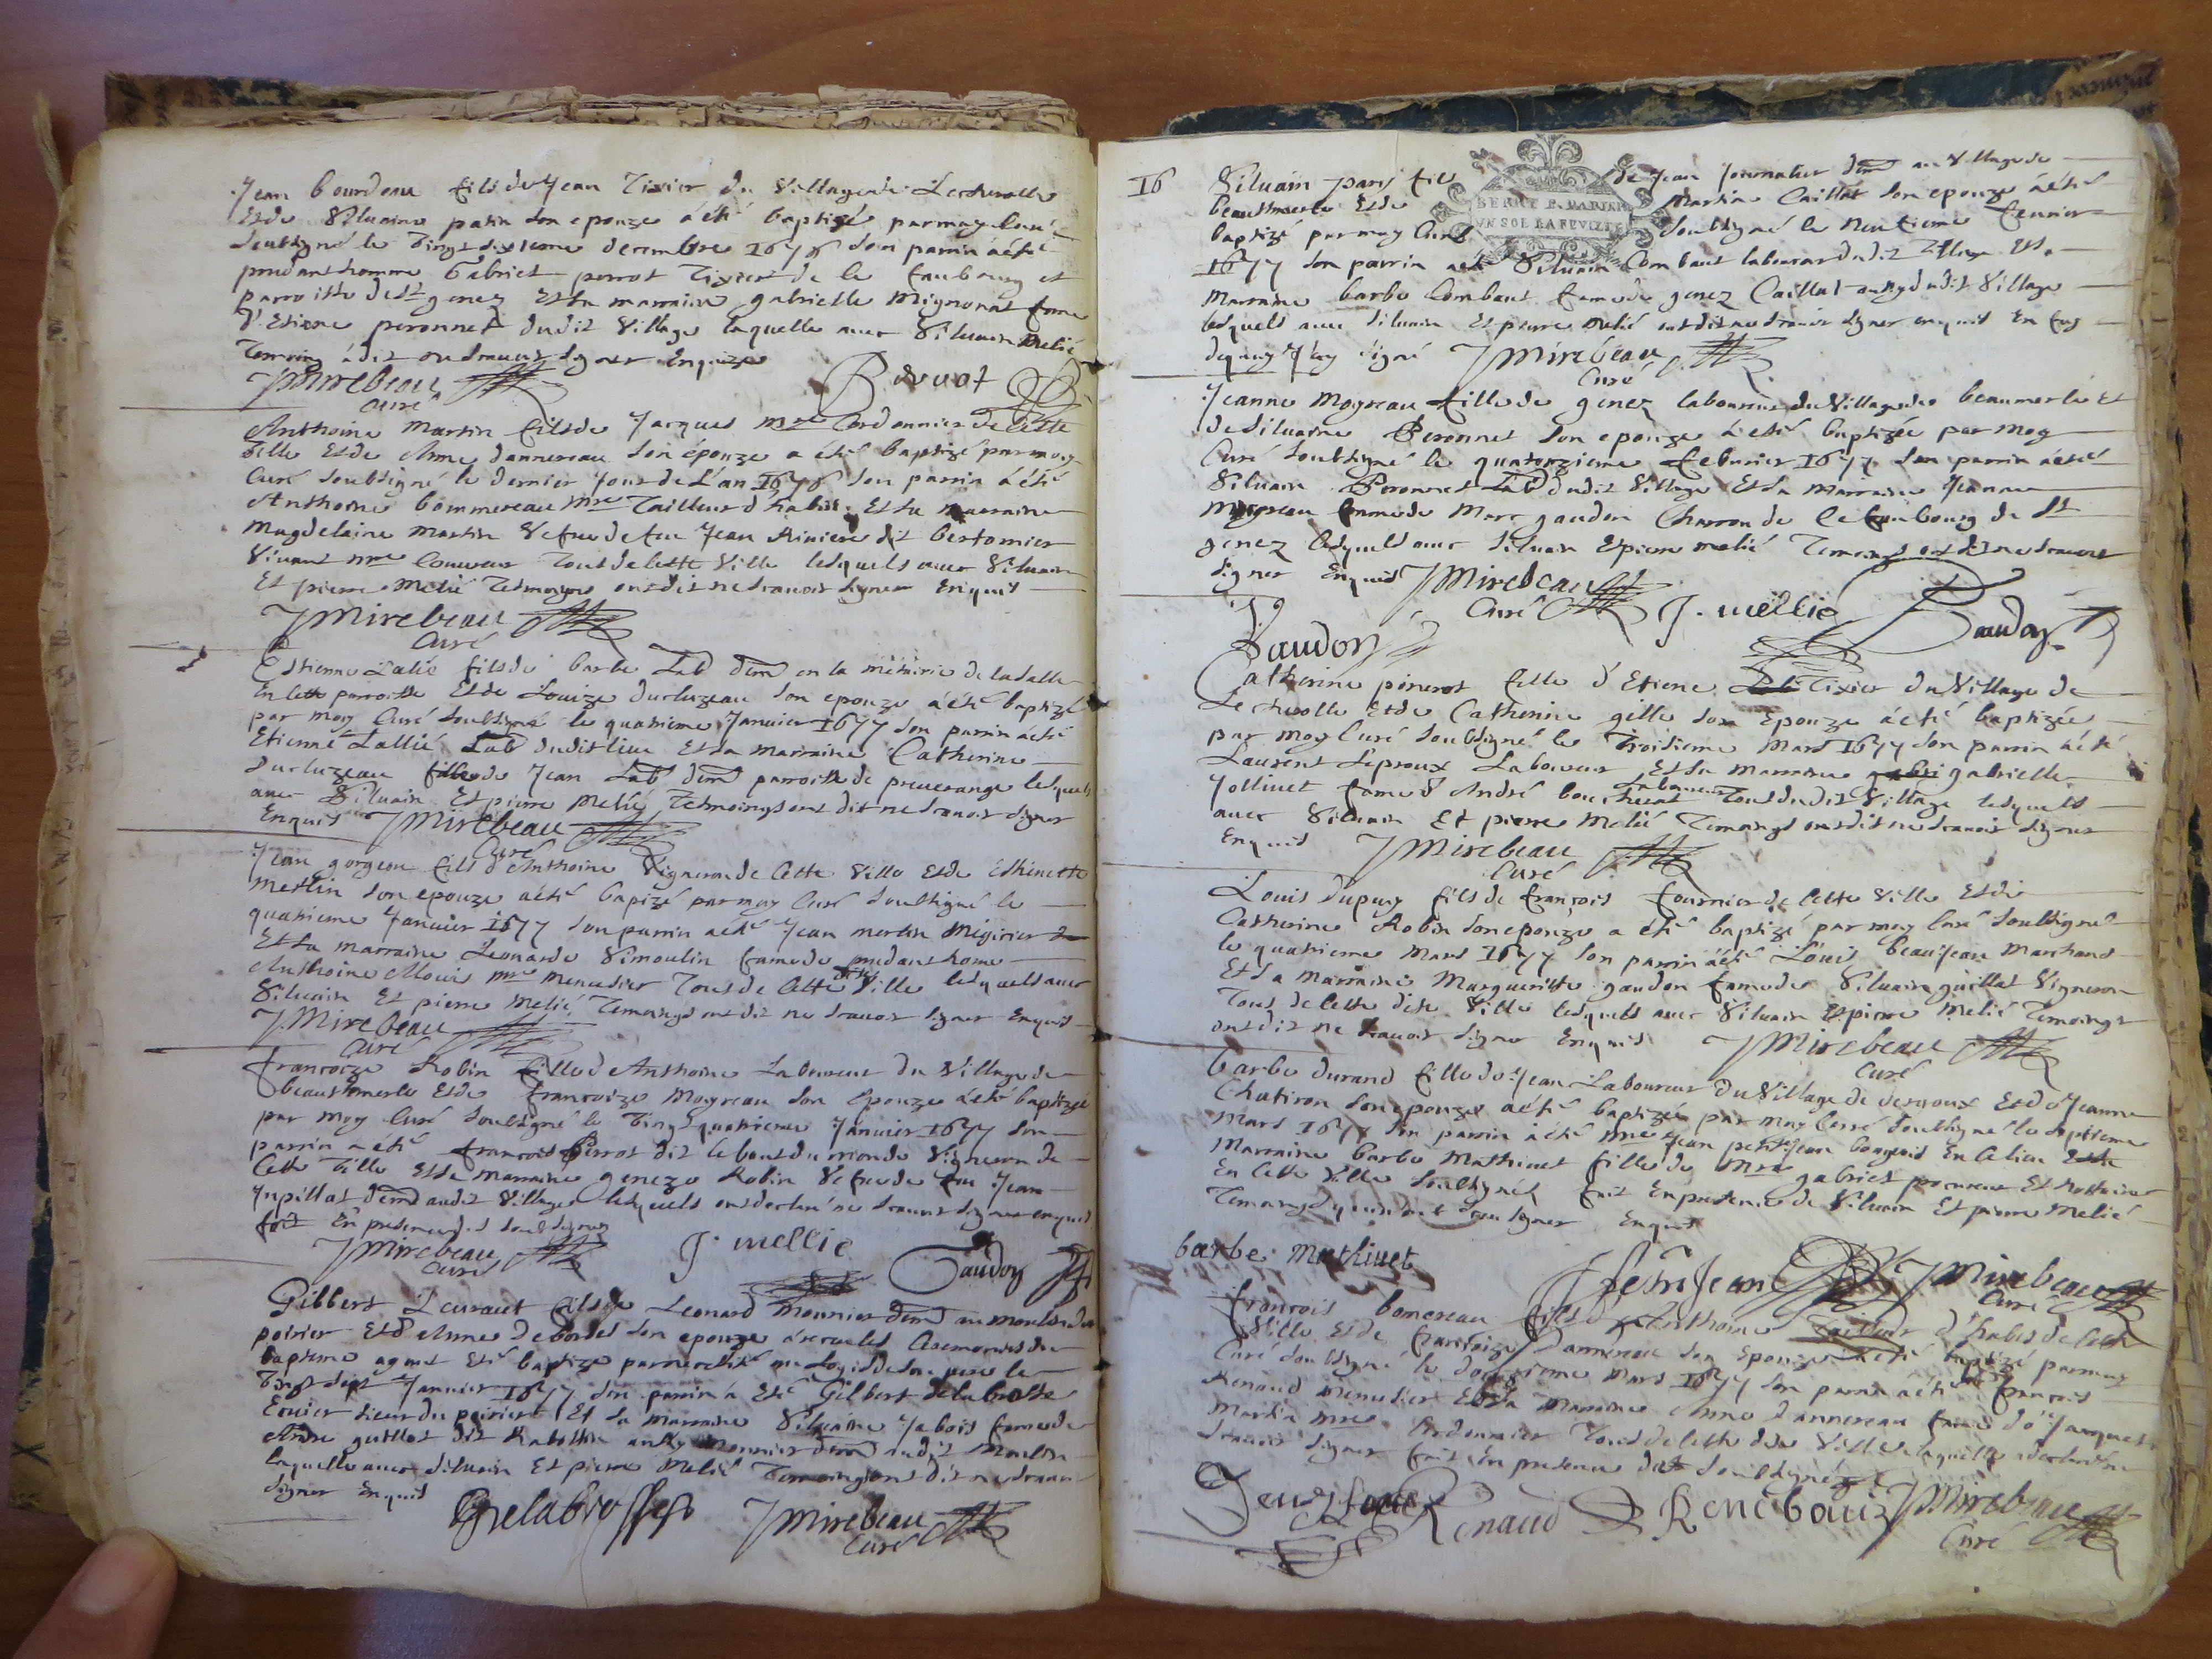 Jean bourdeau fils de Jean Tixier du Village de Lecherolle
Et de Siluaine patin son epouze a été baptizé par moy Curé
soubsigné le Vingt sixieme decembre 1676 son parrin a été
prudant homme Gabriel perrot Tixier de le faubourg et
parroisse de St genez Et sa marraine gabrielle Mignonat fame
d'Etiene peronnet dudit Village laquelle avec Siluain Melié
Temoing a dit ne scauoir signer Enquize
JMirebeau
Curé
Anthoine Martin fils de Jacques mre Cordonnier de Cette
Ville Et de Anne dannereau son épouze a été baptizé par moy
Curé soubsigné le dernier Jour de L'an 1676 son parrin a été
Anthoine bommereau Mre Tailleur d'habits Et sa marraine
Magdelaine Martin Vefue de feu Jean Riuiere dit bertomier
Viuant mre Couureur Tous de Cette Ville lesquels auec Siluain
Et pierre Melié Tesmoings ont dit ne scauoir signer Enquis
JMirebeau
Curé
Estienne Lalié fils de barbe Lab dem en la métairie de lasalle
En Cette parroisse Et de Louize durluzeau son epouze a été baptizé
par moy Curé soubsigné le quatrieme Januier 1677 son parrin a été
Etienne Lallié Lab dudit lieu Et sa marraine Catherine
durluzeau fille de Jean Lab dem parroisse de preuerange lesquels
auec Siluain Et pierre Melié Tesmoings ont dit ne scauoir signer
Enquis JMirebeau
Curé
Jean gorgeon fils d'Anthoine Vigneron de Cette Ville Et de Ethienette
Merlin son epouze a été bapizé par moy Curé soubsigné le
quatrieme Januier 1677 son parrin a été Jean merlin Migirier
Et sa marraine Leonarde Vimoulin fame de prudant home
Anthoine Mre menusier Tous de Cette dite Ville lesquels auec
Siluain Et pierre Melié Temoings ont dit ne scauoir signer Enquis
JMirebeau
Curé
francoize Robin fille d'Anthoine Laboureur du Village de
beaumerle Et de francoize Moyreau son Epouze a été baptizée
par moy Curé soubsigné le Vingt quatrieme Januier 1677 son
parrin a été francois Perrot dit le bout du monde Vigneron de
Cette Ville Et sa marraine geneze Robin Vefue de feu Jean
Jupillat dem audit Village lesquels ont declaré ne scauoir signer enquis
fait En presence des soubsignez
JMirebeau J. mellié Gaudon
Curé
Gilbert Leuraut fils de Leonard mounier dem au moulin du
poirier Et d'Anne debordes son epouze a receu les Ceremonies du
baptême ayant Eté baptizé par necessité au Logis de son pere le
Vingt sept Januier 1677 son parrin a Eté Gilbert delabrosse
Ecuier sieur du poirier Et sa marraine Siluaine Jabois fame de
Andre guillot dit Rabottin aussy mounier dem audit Moulin
laquelle auec Siluain Et pierre Melié Temoings ont dit ne scauoir
signer Enquis Gdelabrosse JMirebeau
Curé
16 Siluain paris fils de Jean Journalier dem au Village de
beaumerle Et de Martine Caillat son epouze a été
baptizé par moy Curé soubsigné le Neufieme feurier
BERRY B MARIEN
UN SOL LA FEUILLE
1677 son parrin a été Siluain Combaut laboureur dudit Village Et sa
Marraine barbe Combaut fame de genez Caillat aussy dudit Village
lesquels auec Siluain Et pierre Melié ont dit ne scauoir signer enquis En foy
dequoy J'ay signé JMirebeau
Curé
Jeanne Moyreau fille de genez laboureur du Village de beaumerle Et
de Siluaine Peronnet son epouze a eté baptizée par moy
Curé soubsigné le quatorzieme feburier 1677 son parrin a été
Siluain Peronnet Lab dudit Village Et sa Marraine Jeanne
Moyreau femme de Marc gaudon Charron de le faubourg de St
genez lesquels auec Siluain Et pierre melié Temoings ont dit ne scauoir
signer Enquis JMirebeau
Curé J. mellié Gaudon
Gaudon
Catherine perrot fille d'Etiene Tixier du Village de
Lecherolle Et de Catherine gille son Epouze a été baptizée
par moy Curé soubsigné le Troisieme Mars 1677 son parrin a été
Laurent Leproux Laboureur Et sa Marraine gabrielle
Jollinet fame d'André boucheret Laboureur Tous dudit Village lesquels
auec Siluain Et pierre Melié Temoings ont dit ne scauoir signer
Enquis JMirebeau
Curé
Louis dupuy fils de françois fournier de Cette Ville Et de
Catherine Robin son epouze a été baptizé par moy Curé soubsigné
le quatrieme Mars 1677 son parrin a été Louis beaujean Marchand
Et sa Marraine Marguerite gaudon fame de Siluain guillat Vigneron
Tous de Cette dite Ville lesquels auec Siluain Et pierre Melié Temoings
ont dit ne scauoir signer Enquis JMirebeau
Curé
barbe durand fille de Jean Laboureur du Village de vernoux Et de Jeanne
Chatiron son epouze a été baptizée par moy Curé soubsigné le septieme
Mars 1677 son parrin a été Mre Jean petitJean bourgeois En Ce lieu Et sa
Marraine barbe Mathiuet fille de Mre gabriel procureur Et nottaire
En Cette Ville soubsignés fait En presence de Siluain Et pierre Melié
Temoings qui ont dit ne scauoir signer Enquis
barbe Mathiuet JPetitJean JMirebeau
Curé
francois bomereau fils d'Anthoine Tailleur d'habits de Cette
Ville Et de francoize Dannereau son Epouze a été baptizé par moy
Curé soubsigné le douzieme Mars 1677 son parrin a été francois
Renaud Menusier Et sa Marraine Anne dannereau fame de Jacques
Martin mre Cordonnier Tous de Cette dite Ville laquelle a declaré ne
scauoir signer fait En presence des soubsignéz
Renaud JMirebeau
Curé